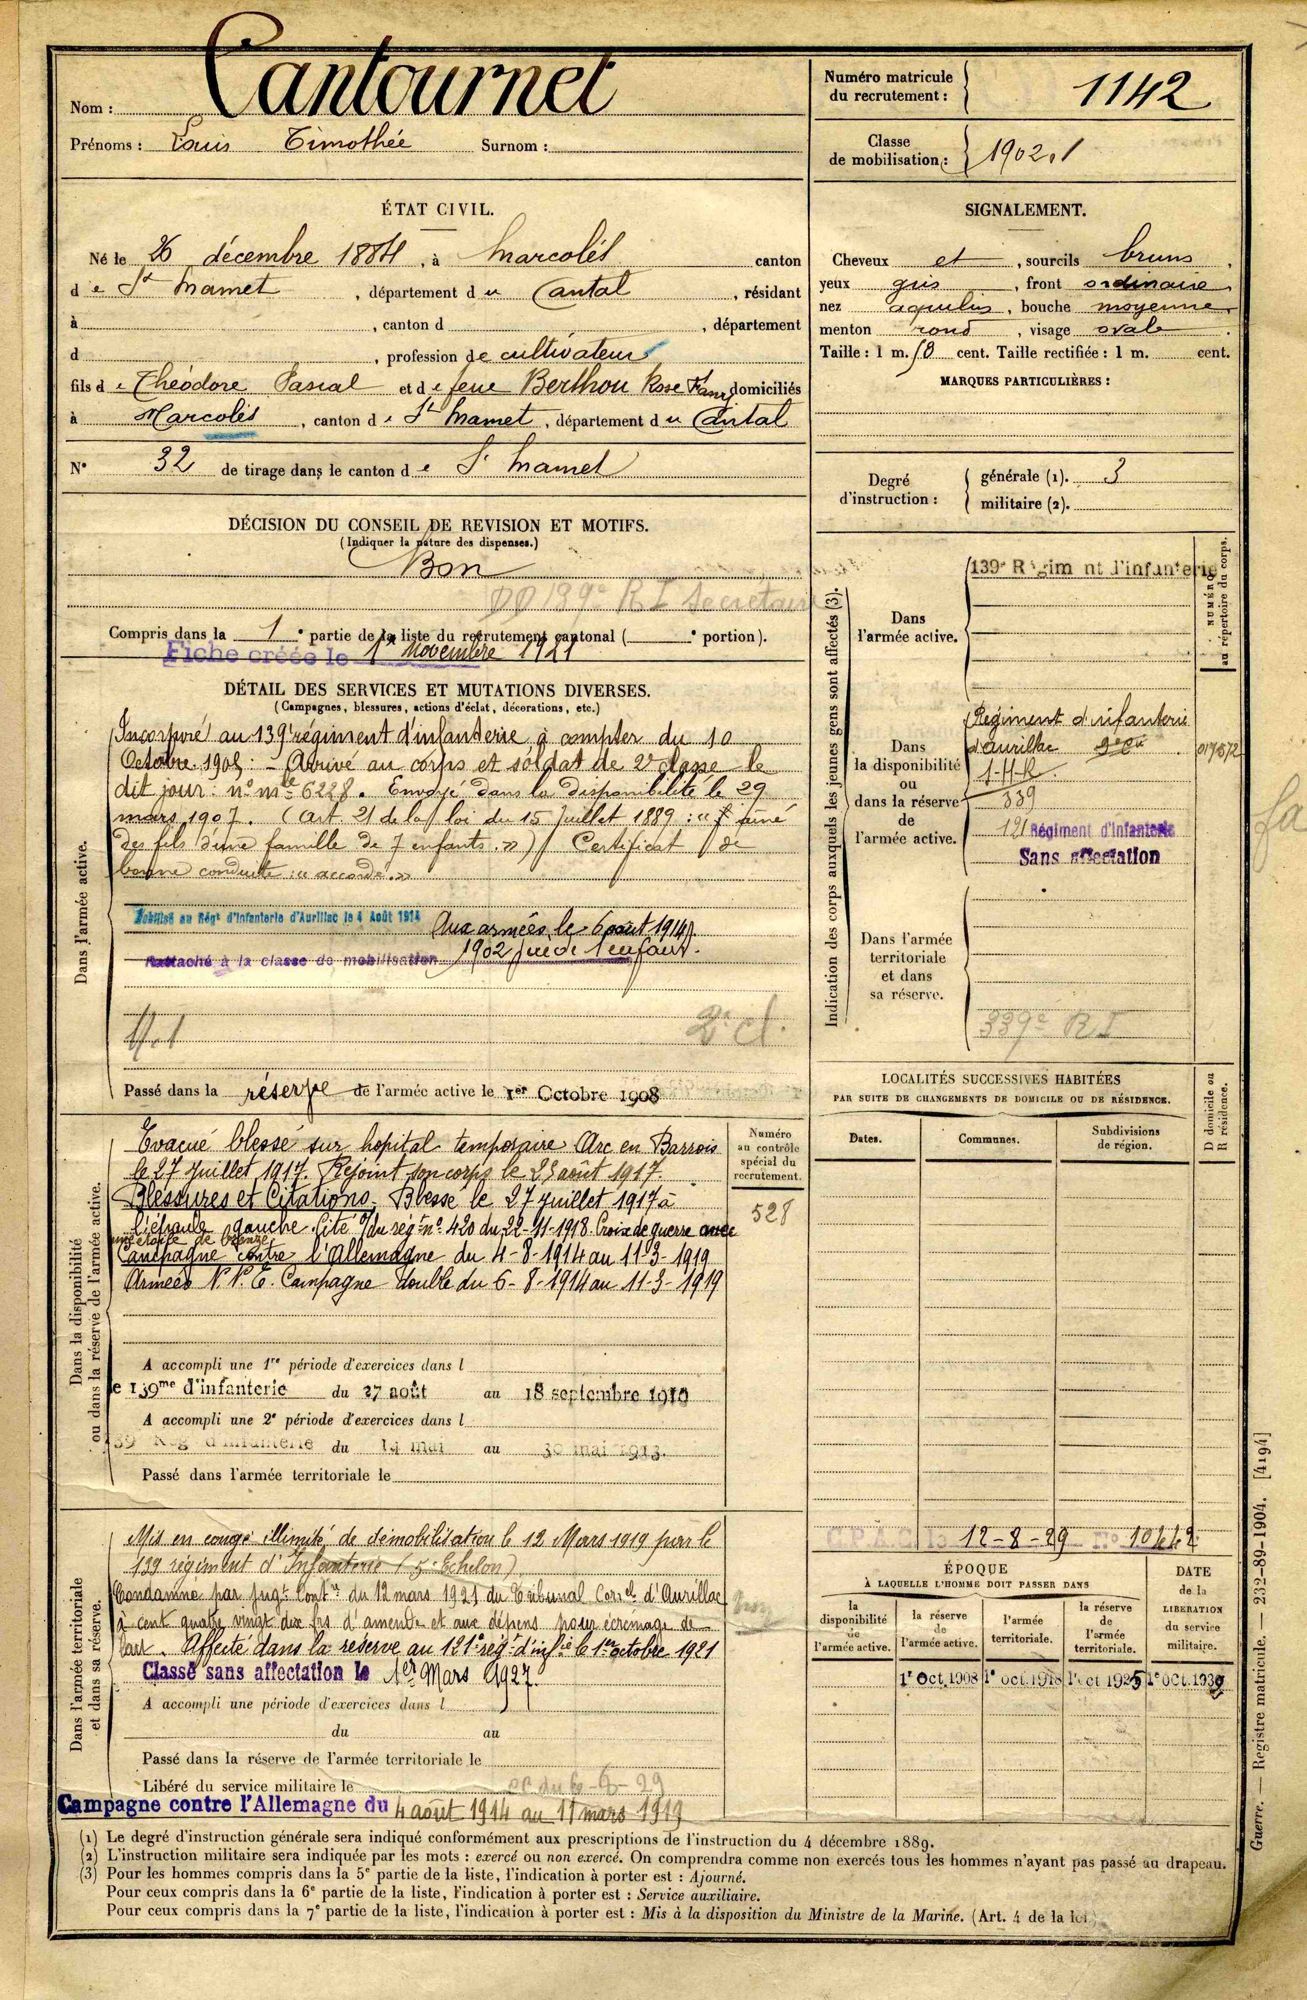 Nom : Cantournet
Prénoms : Louis Timothée Surnom :
Numéro matricule
du recrutement : 1142
Classe
de mobilisation : 1902.1
ÉTAT CIVIL.
Né le 26 décembre 1884, à Marcolès canton
de St Mamet, département du Cantal, résidant
à , canton d , département
d , profession de cultivateur
fils de Théodore Pascal et de feue Berthou Rose Fany domiciliés
à Marcolès, canton de St Mamet, département du Cantal
N° 32 de tirage dans le canton de St Mamet
SIGNALEMENT.
Cheveux et , sourcils bruns,
yeux gris, front ordinaire,
nez aquilin, bouche moyenne,
menton rond, visage ovale.
Taille : 1 m. 58 cent. Taille rectifiée : 1 m. cent.
MARQUES PARTICULIÈRES :
Degré
d'instruction :
générale (1). 3
militaire (2).
DÉCISION DU CONSEIL DE REVISION ET MOTIFS.
(Indiquer la nature des dispenses.)
Bon
139e R I Secretaire
Compris dans la 1e partie de la liste du recrutement cantonal ( e portion).
Fiche créée le 1er Novembre 1921
DÉTAIL DES SERVICES ET MUTATIONS DIVERSES.
(Campagnes, blessures, actions d'éclat, décorations, etc.)
Dans l'armée active.
Incorporé au 139e régiment d'infanterie à compter du 10
Octobre 1905 : - Arrivé au corps et soldat de 2e classe le
dit jour : n° mle 6228. Envoyé dans la disponibilité le 29
mars 1907. (art. 21 de la loi du 15 juillet 1889 : "f aîné
des fils d'une famille de 7 enfants.») Certificat de
bonne conduite : «accordé.»
Mobilisé au Régt d'Infanterie d'Aurillac le 4 Août 1914 Aux armées le 6 août 1914
Rattaché à la classe de mobilisation 1902 père de 1 enfant.
2e cl.
Passé dans la réserve de l'armée active le 1er Octobre 1908
Indication des corps auxquels les jeunes gens sont affectés (3).
NUMÉRO
au répertoire du corps.
Dans
l'armée active.
139e Régiment d'infanterie
Dans
la disponibilité
ou
dans la réserve
de
l'armée active.
Régiment d'infanterie
d'Aurillac
1-H-R.
339
121 Régiment d'Infanterie
Sans affectation
Dans l'armée
territoriale
et dans
sa réserve.
339e R I
Dans la disponibilité
ou dans la réserve de l'armée active.
Evacué blessé sur hopital temporaire Arc en Barrois
le 27 juillet 1917. Rejoint son corps le 23 août 1917.
Blessures et Citations. Blessé le 27 juillet 1917 à
l'épaule gauche. Cité O/du régt n° 420 du 22-11-1918. Croix de guerre avec
une étoile de bronze.
Campagne contre l'Allemagne du 4-8-1914 au 11-3-1919
Armées N. N. E. Campagne double du 6-8-1914 au 11-3-1919
Numéro
au contrôle
spécial du
recrutement.
528
A accompli une 1re période d'exercices dans l
e 139me d'infanterie du 27 août au 18 septembre 1910
A accompli une 2e période d'exercices dans l
139 Rég d'infanterie du 14 mai au 30 mai 1913.
Passé dans l'armée territoriale le
LOCALITÉS SUCCESSIVES HABITÉES
PAR SUITE DE CHANGEMENTS DE DOMICILE OU DE RÉSIDENCE.
D domicile ou
R résidence.
Dates. Communes. Subdivisions
de région.
Dans l'armée territoriale
et dans sa réserve.
Mis en congé illimité de démobilisation le 12 Mars 1919 par le
139 régiment d'Infanterie (5e Echelon)
Condamné par jugt contre du 12 mars 1921 du Tribunal Correl d'Aurillac
à cent quatre vingt dix frs d'amende et aux dépens pour écrémage de
lait. Affecté dans la réserve au 121e rég-t d'infie le 1er octobre 1921
Classé sans affectation le 1er Mars 1927.
A accompli une période d'exercices dans l
du au
Passé dans la réserve de l'armée territoriale le
Libéré du service militaire le
Campagne contre l'Allemagne du 4 août 1914 au 11 mars 1919
12-8-29 N° 10442
ÉPOQUE
À LAQUELLE L'HOMME DOIT PASSER DANS
DATE
de la
LIBERATION
du service
militaire.
la
disponibilité
de
l'armée active.
la réserve
de
l'armée active.
l'armée
territoriale.
la réserve
de
l'armée
territoriale.
1e Oct. 1908 1e oct. 1918 1e oct 1925 1e oct. 1932
(1) Le degré d'instruction générale sera indiqué conformément aux prescriptions de l'instruction du 4 décembre 1889.
(2) L'instruction militaire sera indiquée par les mots : exercé ou non exercé. On comprendra comme non exercés tous les hommes n'ayant pas passé au drapeau.
(3) Pour les hommes compris dans la 5e partie de la liste, l'indication à porter est : Ajourné.
Pour ceux compris dans la 6e partie de la liste, l'indication à porter est : Service auxiliaire.
Pour ceux compris dans la 7e partie de la liste, l'indication à porter est : Mis à la disposition du Ministre de la Marine. (Art. 4 de la loi.)
Guerre. — Registre matricule. — 232-89-1904. [4194]